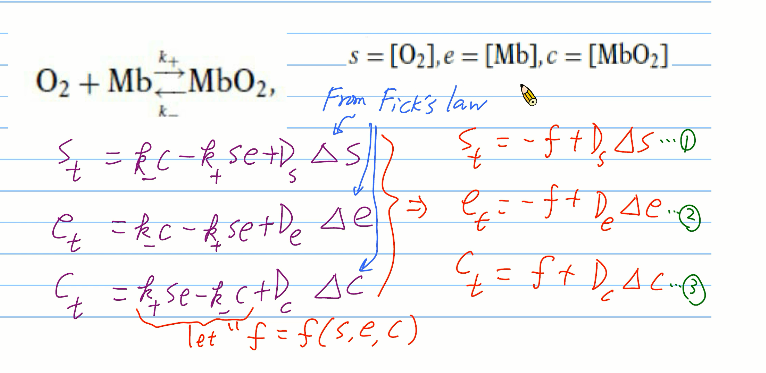 k₊
O₂ + Mb ⇄ MbO₂,
k₋
s = [O₂], e = [Mb], c = [MbO₂]
From Fick's law
S_t = k₋c − k₊se + D_s Δs
e_t = k₋c − k₊se + D_e Δe
C_t = k₊se − k₋c + D_c Δc
let " f = f(s, e, c)
⇒
S_t = −f + D_s Δs ⋯①
e_t = −f + D_e Δe ⋯②
C_t = f + D_c Δc ⋯③